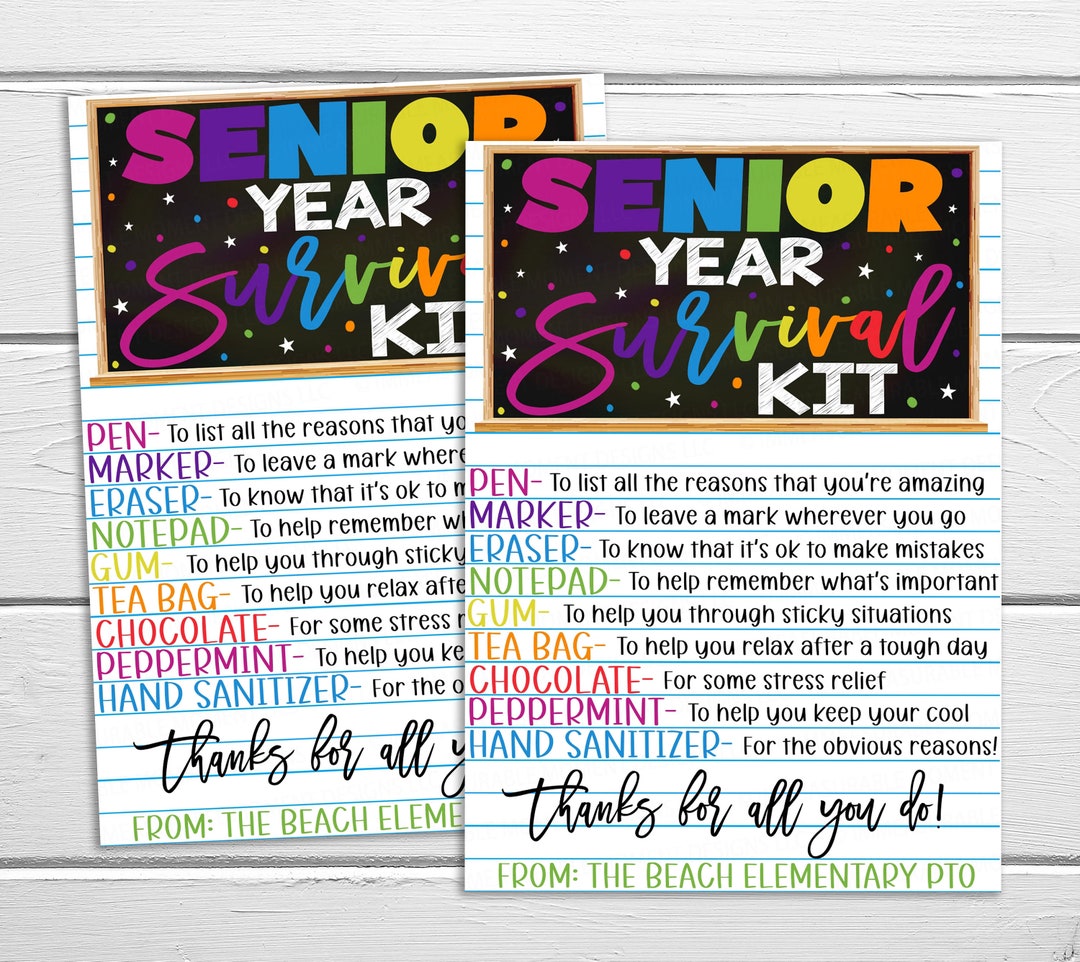 SENIOR
YEAR
Surviv
KI
PEN- To list all the reasons that yo
MARKER- To leave a mark where
ERASER- To know that it's ok to m
NOTEPAD- To help remember wh
GUM- To help you through sticky
TEA BAG- To help you relax afte
CHOCOLATE- For some stress r
PEPPERMINT- To help you ke
HAND SANITIZER- For the o
thanks for all y
FROM: THE BEACH ELEME
SENIOR
YEAR
Survival
KIT
PEN- To list all the reasons that you're amazing
MARKER- To leave a mark wherever you go
ERASER- To know that it's ok to make mistakes
NOTEPAD- To help remember what's important
GUM- To help you through sticky situations
TEA BAG- To help you relax after a tough day
CHOCOLATE- For some stress relief
PEPPERMINT- To help you keep your cool
HAND SANITIZER- For the obvious reasons!
thanks for all you do!
FROM: THE BEACH ELEMENTARY PTO